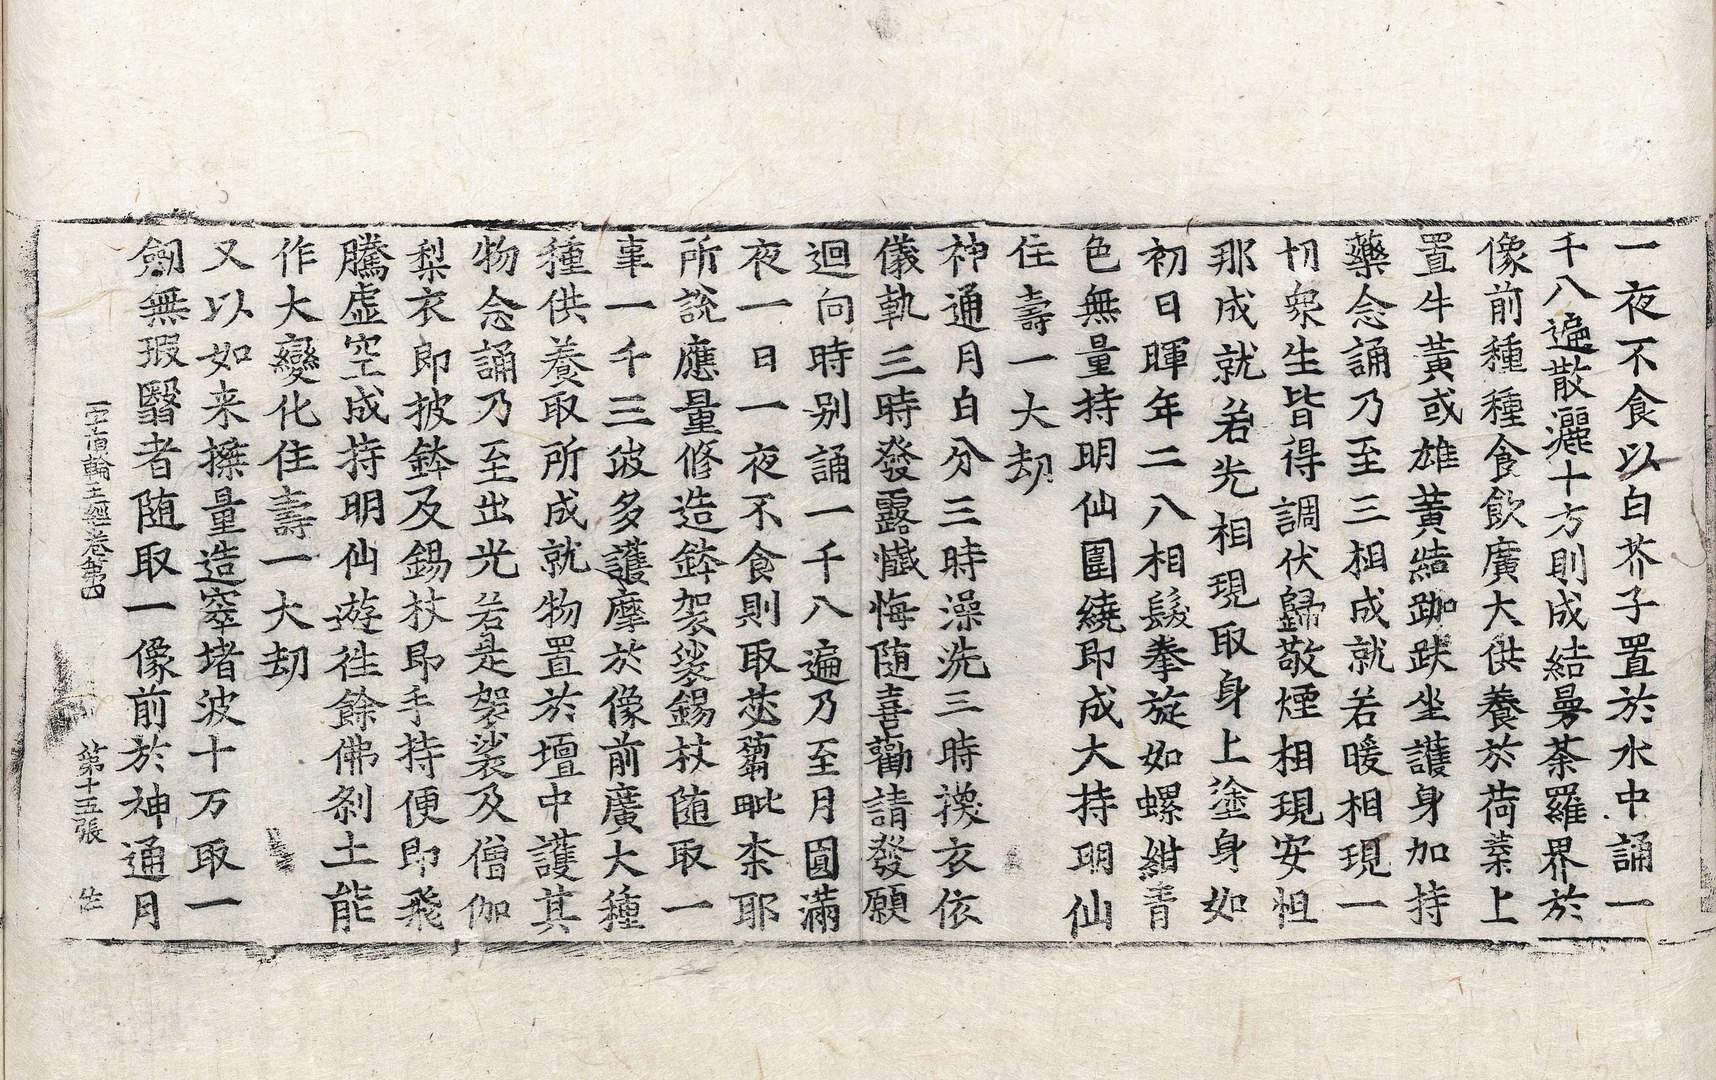 一夜不食以白芥子置於水中誦一
千八遍散灑十方則成結曼荼羅界於
像前種種食飲廣大供養於荷葉上
置牛黃或雄黃結跏趺坐護身加持
藥念誦乃至三相成就若暖相現一
切衆生皆得調伏歸敬煙相現安怛
那成就若光相現取身上塗身如
初日暉年二八相髮拳旋如螺紺青
色無量持明仙圍繞即成大持明仙
住壽一大劫
神通月白分三時澡洗三時換衣依
儀軌三時發露懺悔随喜勸請發願
迴向時别誦一千八遍乃至月圓滿
夜一日一夜不食則取苾蒭毗柰耶
所說應量修造鉢袈裟錫杖随取一
事一千三波多護摩於像前廣大種
種供養取所成就物置於壇中護其
物念誦乃至出光若是袈裟及僧伽
梨衣即披鉢及錫杖即手持便即飛
騰虛空成持明仙遊往餘佛刹土能
作大變化住壽一大劫
又以如来搩量造窣堵波十万取一
劒無瑕翳者随取一像前於神通月
一字頂輪王經卷第四 第十五張 佐